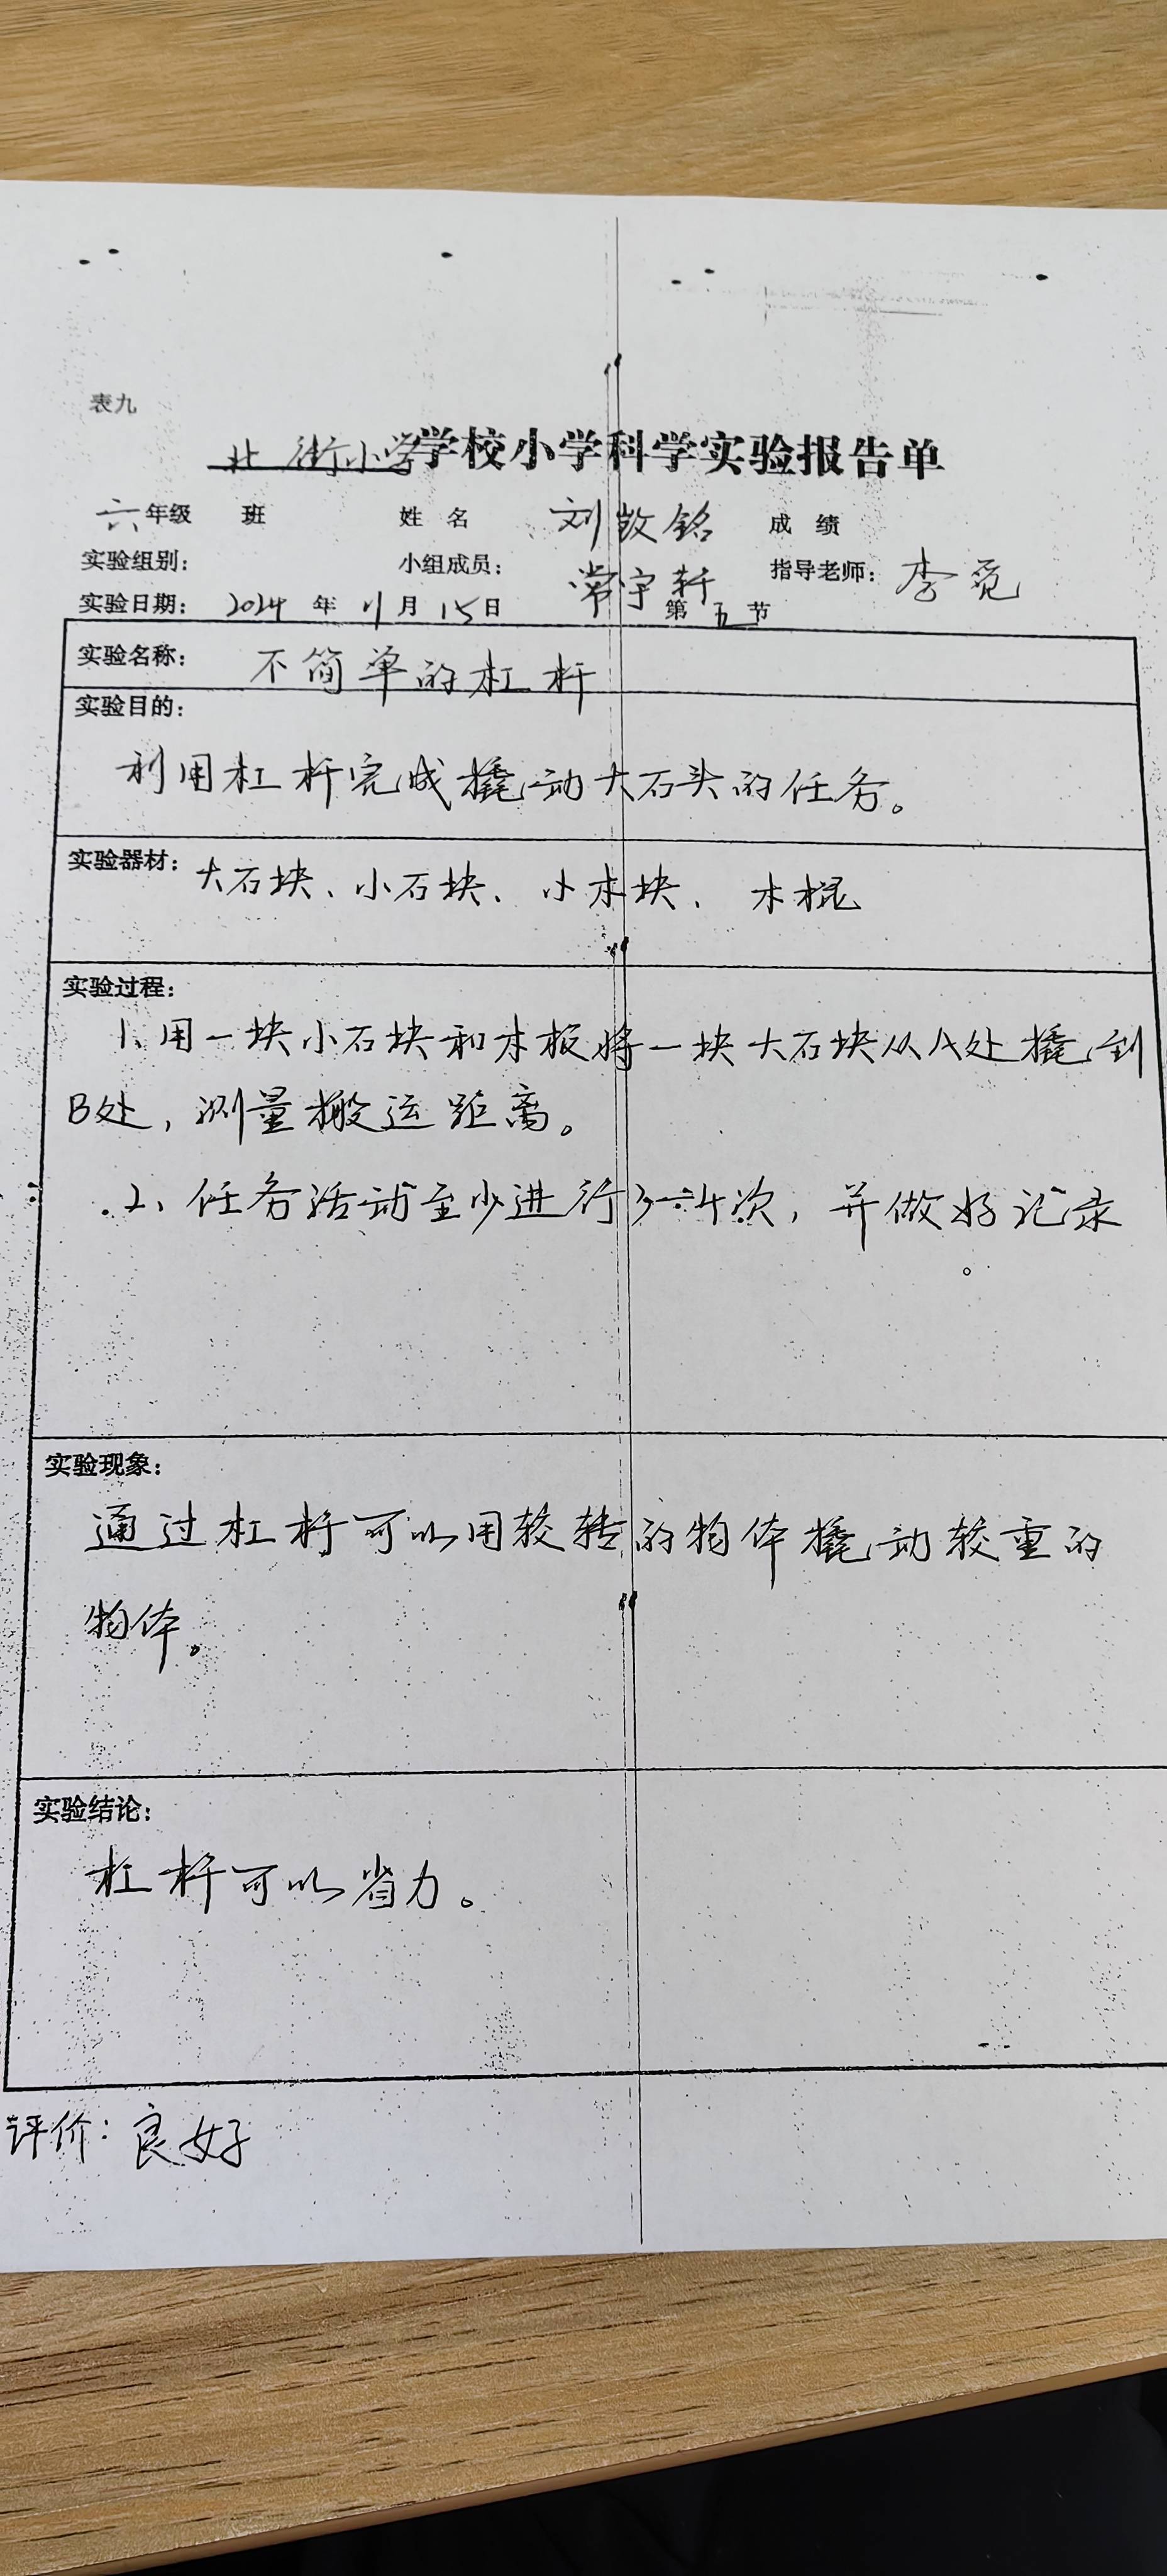 表九
北街小学学校小学科学实验报告单
六年级 班 姓名 刘政铭 成绩
实验组别： 小组成员： 常宇轩 指导老师：李觅
实验日期： 2024 年 11 月 15 日 第 五 节
实验名称： 不简单的杠杆
实验目的：
利用杠杆完成撬动大石头的任务。
实验器材：大石块、小石块、小木块、木棍
实验过程：
1、用一块小石块和木板将一块大石块从A处撬到
B处，测量搬运距离。
2、任务活动至少进行3—4次，并做好记录
。
实验现象：
通过杠杆可以用较轻的物体撬动较重的
物体。
实验结论：
杠杆可以省力。
评价：良好